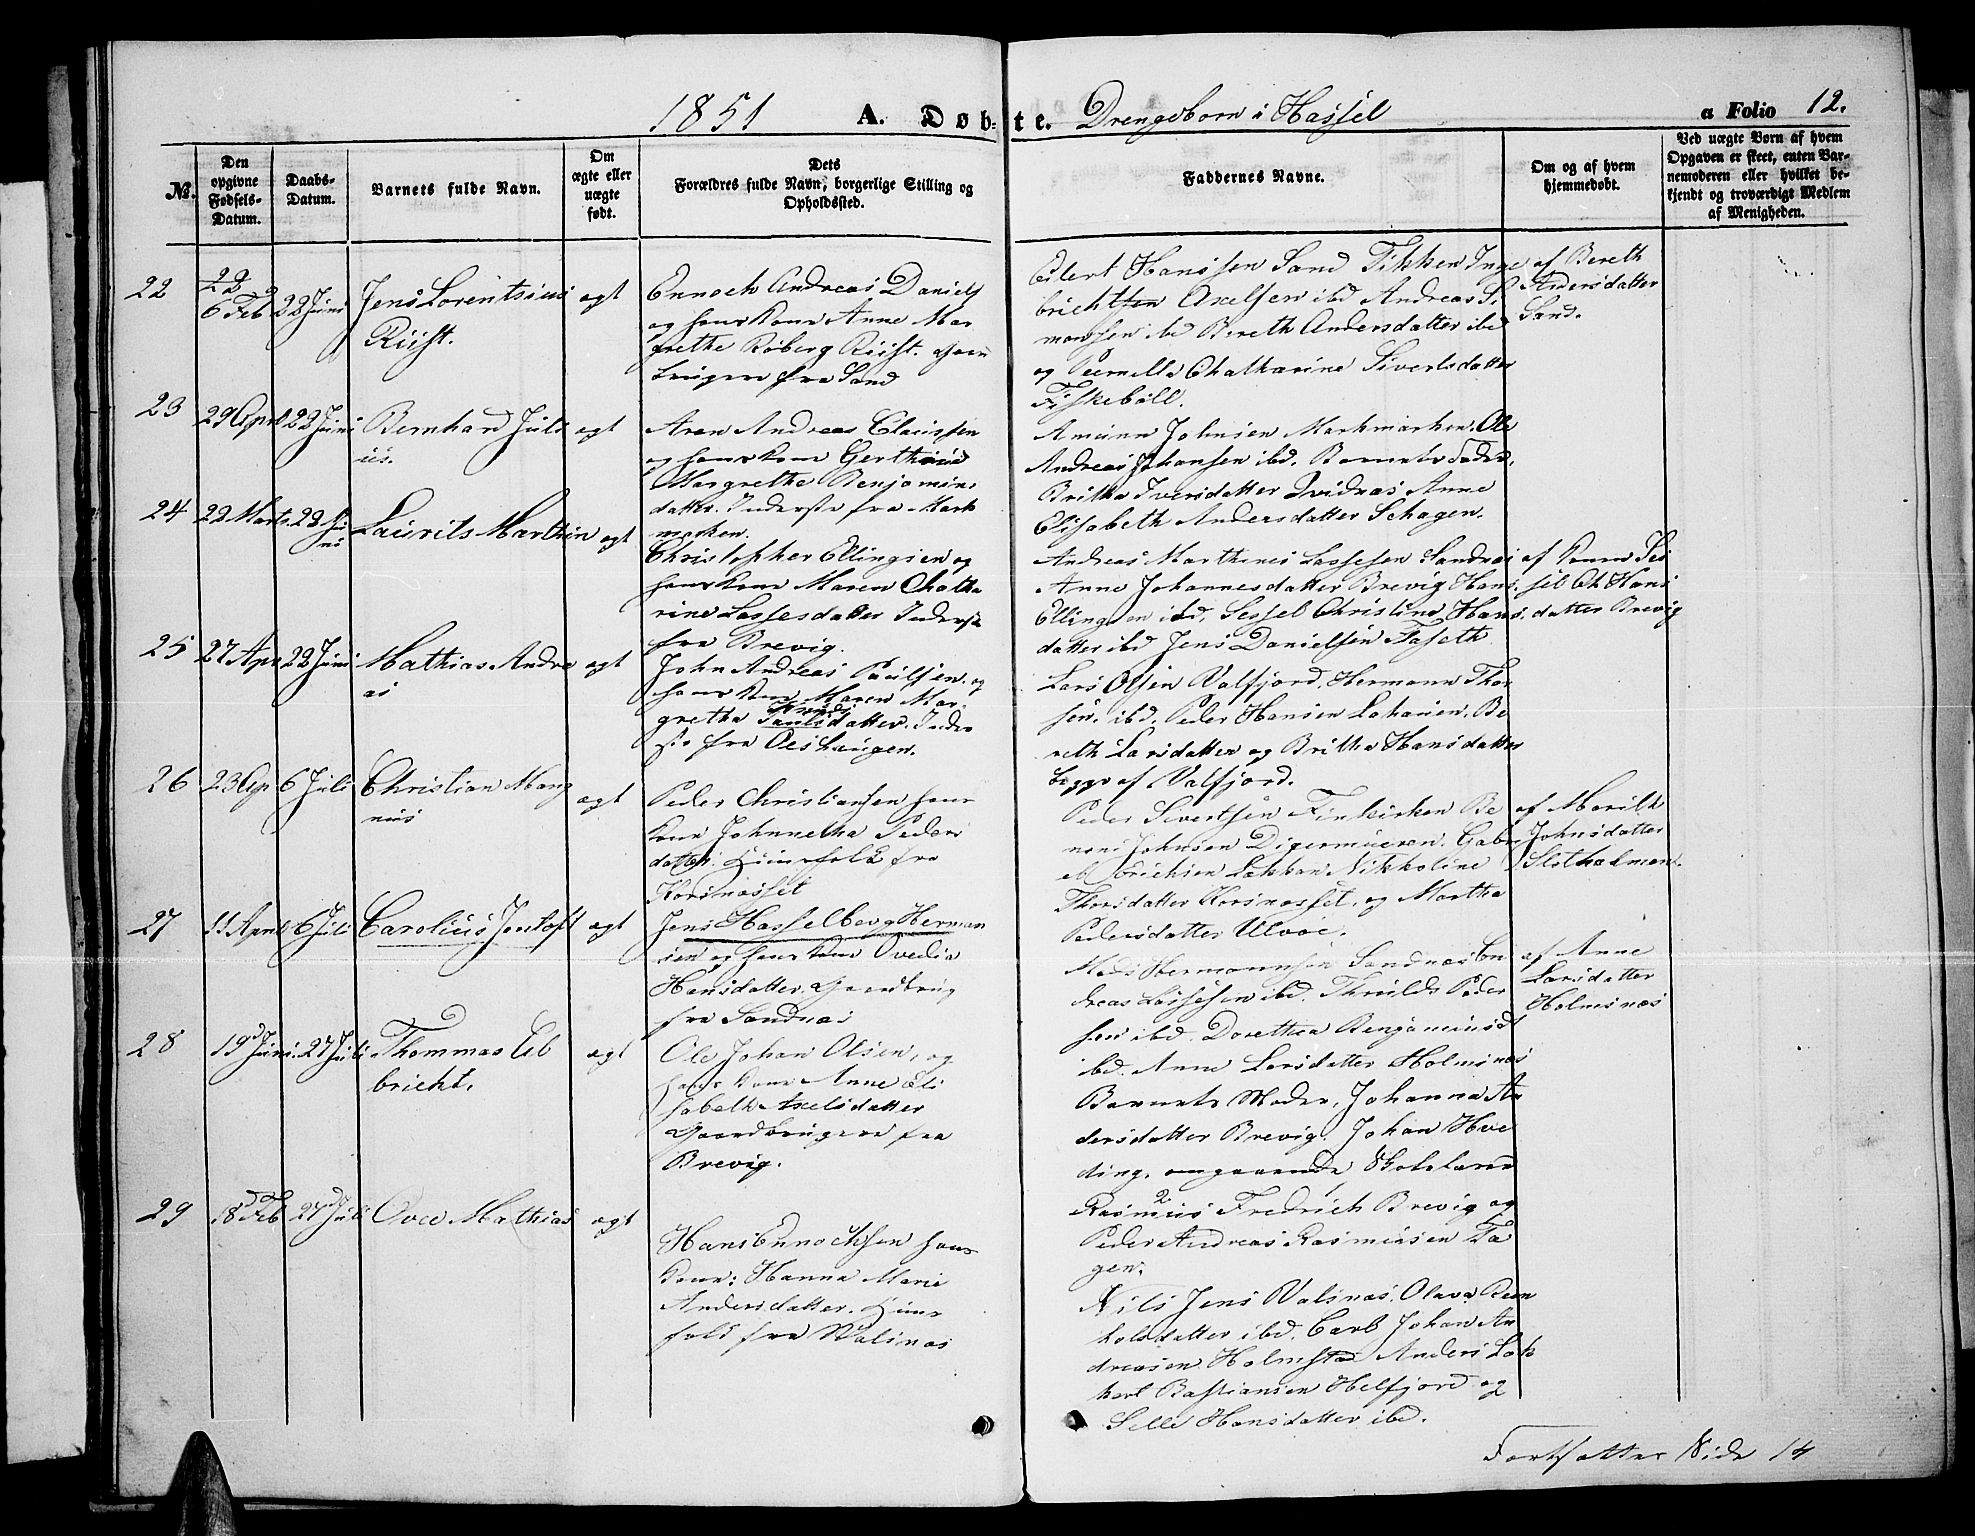 1851 A. Døb= te. Drengebørn i Hassel a Folio 12.
No.
Den opgivne Fødsels-Datum.
Daabs-Datum.
Barnets fulde Navn.
Om ægte eller uægte født.
Dets Forældres fulde Navn, borgerlige Stilling og Opholdssted.
Faddernes Navne.
Om og af hvem hjemmedøbt.
Ved uægte Børn af hvem Opgaven er skeet, enten Barnemoderen eller hvilket bekjendt og troværdigt Medlem af Menigheden.
22
22
6 Feb 22 Juni Jens Lorentsius ægt
Riist.
Ennoch Andreas Daniels
og hans Kone Anne Mar
grethe Roberg Riist. Gaard
brugere fra Sand
Eilert Hanssen Sand Tikken Inge
brichtsen Axelsen ibd Andreas Si
monssen ibd Bereth Andersdatter ibd
og Pernille Chatharine Sivertsdatter
Fiskebøll.
af Bereth
Andersdatter
Sand.
23 29 Apr 22 Juni Bernhard Juli ægt
us.
Aron Andreas Clausen
og hans Kone Gerthine
Margrethe Benjamins
datter. Inderste fra Mark
marken.
Amund Johnsen Markmarken. Ole
Andreas Johansen ibd. Barnets Fader.
Britha Iversdatter Qvidnæs Anne
Elisabeth Andersdatter Schagen.
24 22 Marts 22 Ju
ni
Laurits Marthin ægt
Christopher Ellingsen og
hans Kone Maren Chatha
rine Lassesdatter Inderste
fra Brevig.
Andreas Marthines Lassesen Sandnæs
Anne Johannesdatter Brevig Hans
Ellingsen ibd, Sessel Christine Hans
datter ibd Jens Danielsen Faseth
af Konen Ses
sel Ch Hans
datter Brevig
25 27 Apr 22 Juni Mathias Andre ægt
as
John Andreas Paulsen og
hans Kone Maren Mar
Knuds
gretha Paulsdatter. Inder
ste fra Oeshaugen.
Lars Olsen Valfjord, Hermann Thor
sen. ibd. Peder Hansen Lahanien. Be
reth Larsdatter og Britha Hansdatter
begge af Valfjord.
26 23 Ap 6 Juli Christian Mang ægt
nus
Peder Christiansen hans
Kone Johnnetha Peders
datter. Huusfolk fra
Korsnæsset
Peder Sivertsen Finkirken Be
Johnsen Digermueren. Gabri
el Lakken Nikkoline
Thorsdatter Korsnæsset, og Martha
Pedersdatter Ulvøe.
af Marith
Johnsdatter
Slotholmen.
27 11 April 6 Juli Carolius Jentoft ægt
Jens Hasselberg Herman
sen og hans Kone Ovedia
Hansdatter. Gaardbrug
fra Sandnæs
Mads Hermannsen Sandnæs An
dreas Lassesen ibd. Peder
sen ibd. Dorethea Benjaminsd
ibd. Anne Larsdatter Holmsnæs
af Anne
Larsdatter
Holmsnæs
28 19d Juni 27 Juli Thommas Eb ægt
bricht.
Ole Johan Olsen, og
hans Kone Anne Eli
sabeth Axelsdatter
Gaardbrugere fra
Brevig.
Barnets Moder, Johanna An
dersdatter Brevig. Johan Hve
ding, omgaaende Skolelærer
Rasmus Fredrich Brevig og
Peder Andreas Rasmussen Fa
gen.
29 18d Feb 27d Juli Ovee Mathias ægt
Hans Ennochsen hans
Kone: Hanna Marie
Andersdatter. Huus
folk fra Walsnæs
Nils Jens Valsnæs, Olava Reen
holdsdatter ibd. Carl Johan An
dreasen Holmstad Anders Lok
kert Bastiansen Helfjord og
Selle Hansdatter ibd.
Fortsættes Side 14